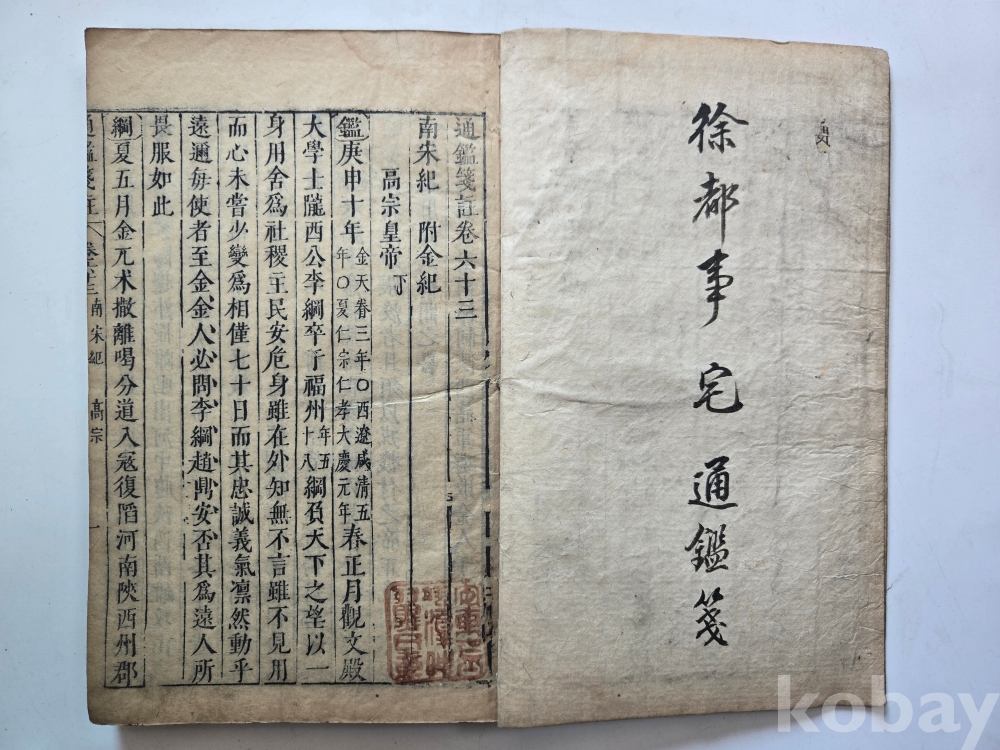 徐都事宅通鑑箋
通鑑箋註卷六十三
南宋紀 附金紀
高宗皇帝 下
鑑庚申十年 金天眷三年〇西遼咸清五年〇夏仁宗仁孝大慶元年 春正月觀文殿
大學士隴西公李綱卒于福州年五十八綱負天下之望以一
身用舍爲社稷主民安危身雖在外知無不言雖不見用
而心未嘗少變爲相僅七十日而其忠誠義氣凛然動乎
遠邇每使者至金金人必問李綱趙鼎安否其爲遠人所
畏服如此
綱夏五月金兀术撒離喝分道入寇復陷河南陝西州郡
通鑑箋註 卷六十三 南宋紀 高宗 一
kobay